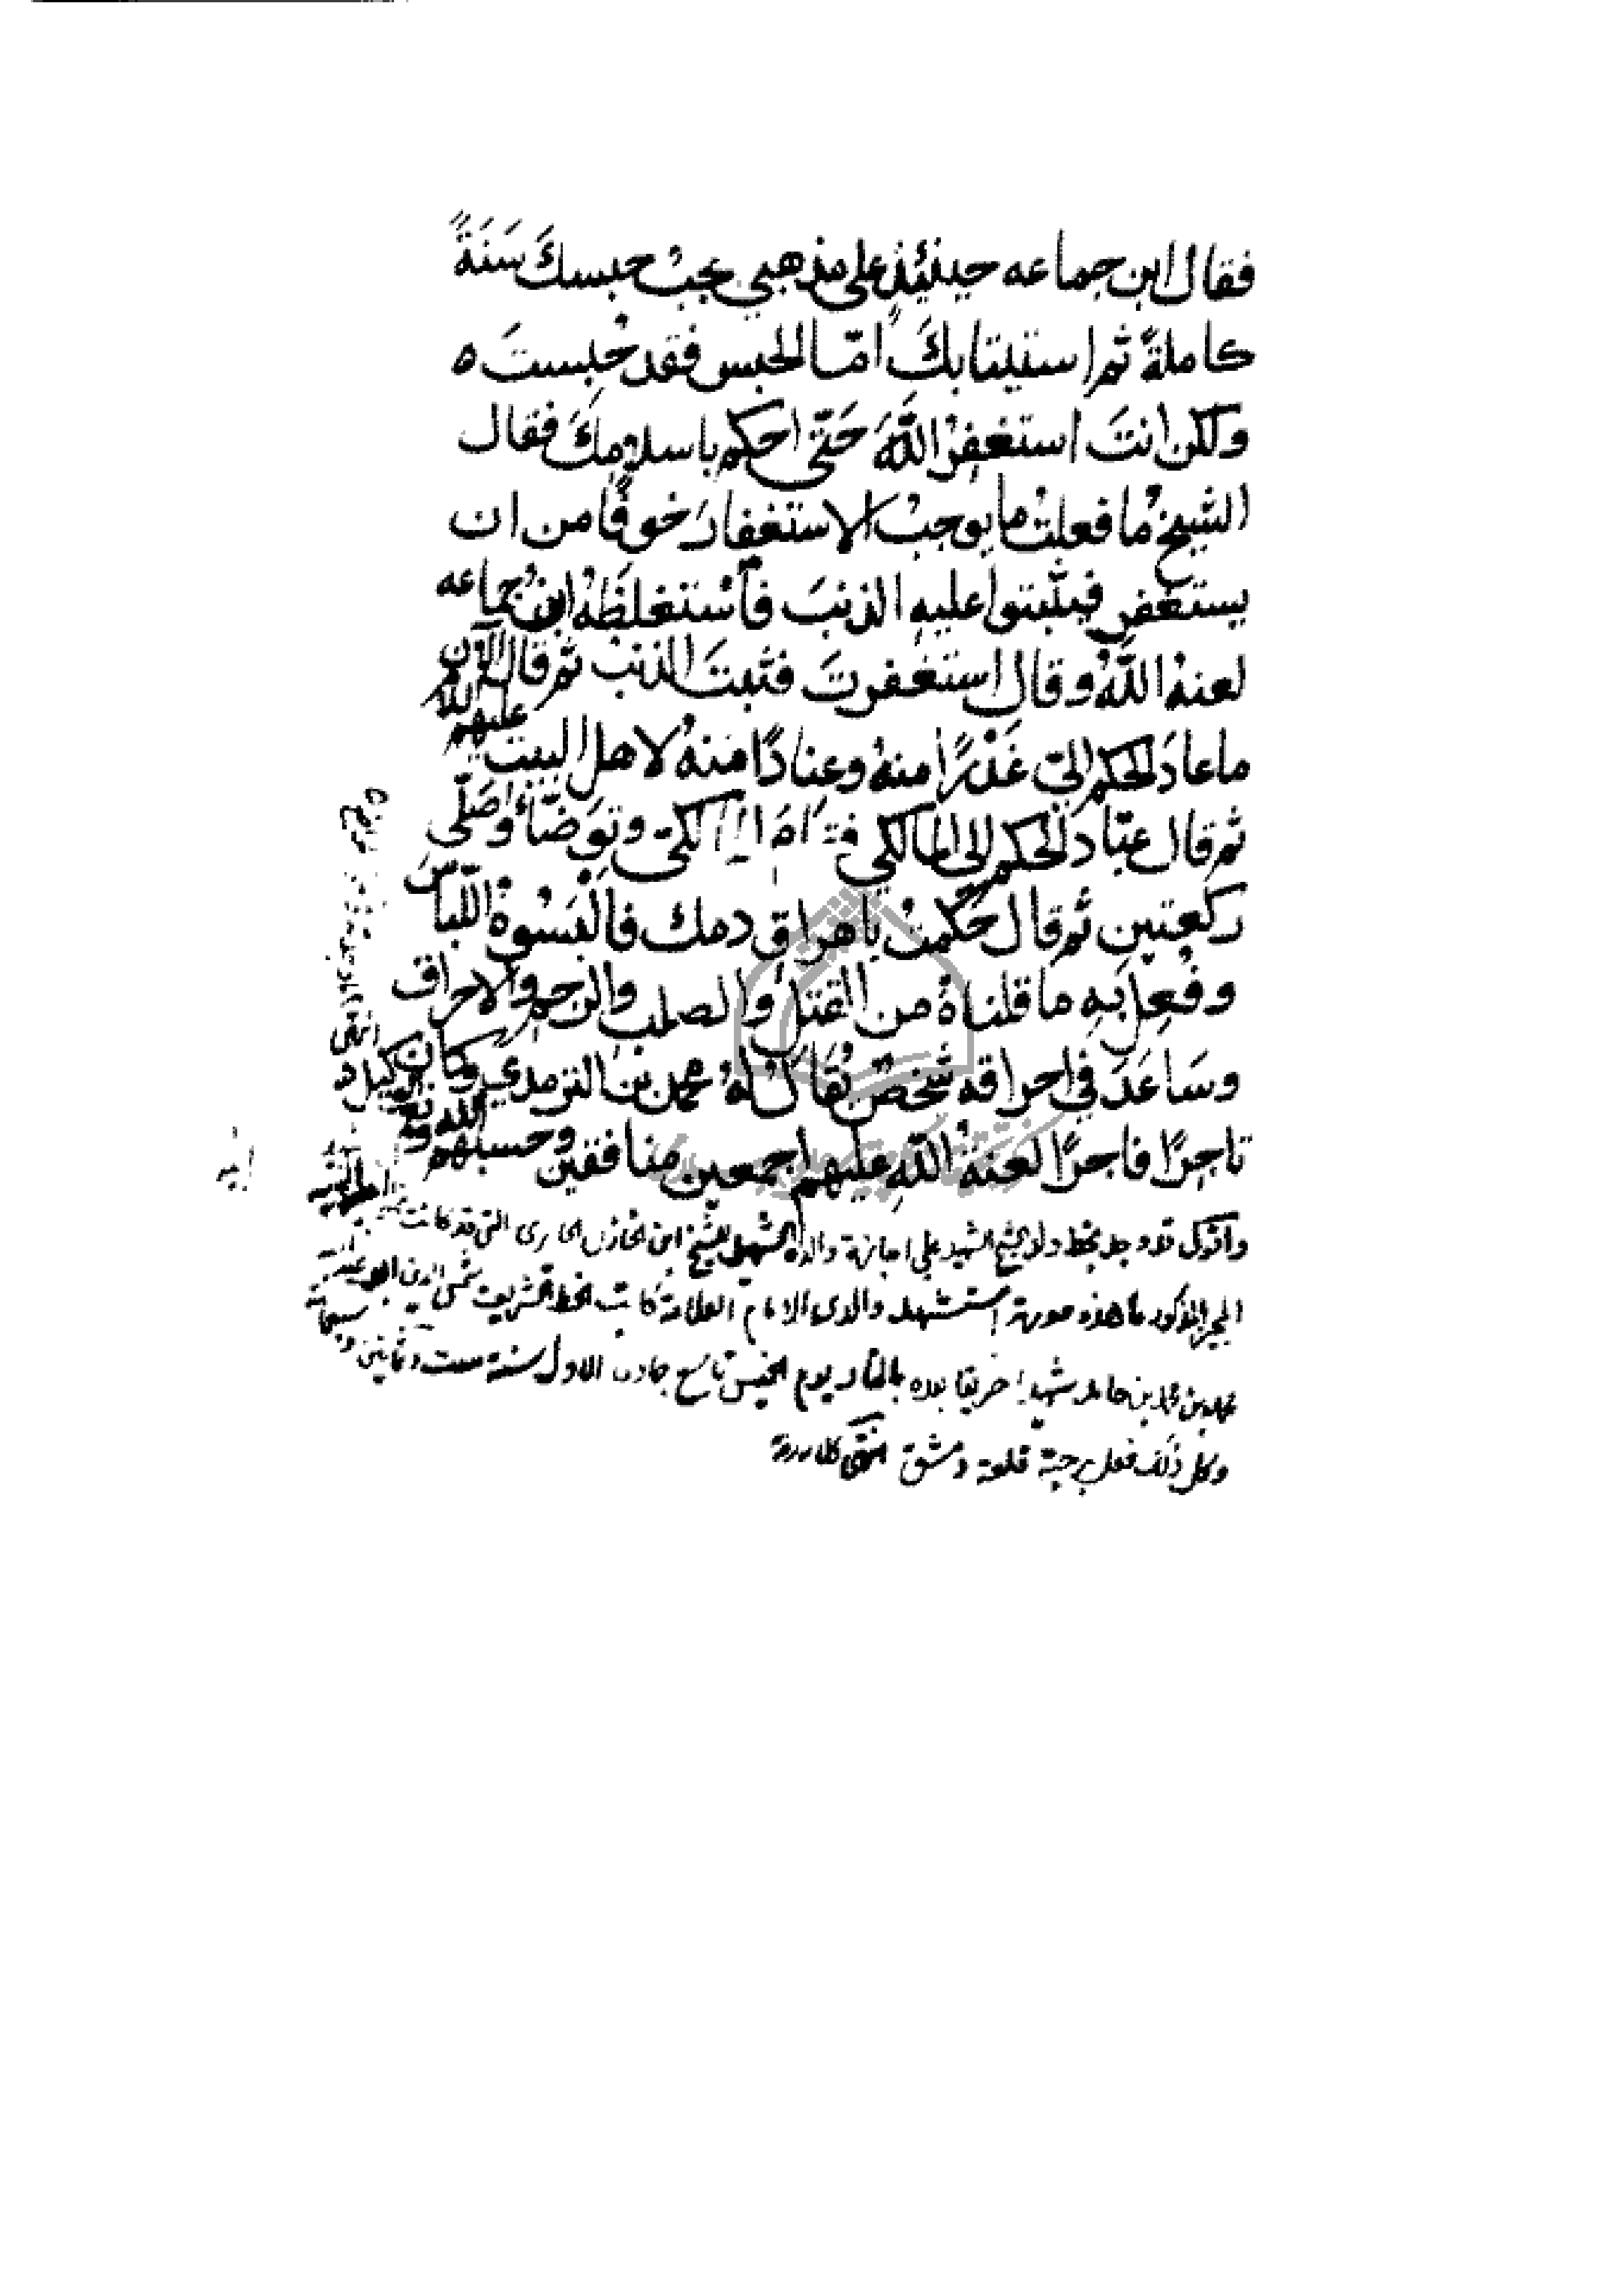 فقال ابن جماعه حينئذ على مذهبي يجبُ حبسكَ سَنَةً
كاملةً ثم استيتابكَ امّا الحبس فقد حُبستَ ه
ولكن انتَ استغفرْ اللّهَ حَتّى احكم باسلامِكَ فقال
الشيخ ما فعلتُ ما يوجبُ الاستغفارَ خوفًا من ان
يستغفر فيثبتوا عليهِ الذنبَ فاستغلظَهُ ابنُ جماعه
لعنهُ اللّهُ وقال استغفرتَ فثبتَ الذنبُ ثم قال الآن
ما عادَ الحكم اليّ غَدْرًا منهُ وعنادًا منهُ لاهل البيت عليهم
ثم قال عبّاد الحكم الى المالكي فقامَ المالكي وتوَضّأَ وصَلّى
ركعتين ثم قال حَكمتُ باهراقِ دمك فالبسُوهُ اللّباسَ
وفُعِل بهِ ما قلناهُ من القتل والصلب والرجم والاحراق
وسَاعَدَ في احراقه شخصٌ يُقالُ لهُ محمد بن الترمدي وكان
تاجرًا فاجرًا لعنةُ اللّهِ عليهم اجمعين منافقين وحسبهم الله
واقول قد وجد بخط ولد الشيخ الشهيد على اجازة والده الشهيد للشيخ ابن الخازن الحايرى التى قد كانت
المذكور ما هذه صورته استشهد والدي الامام العلامة كاتب الخط الشريف شمس الدين ابو عبد
محمد بن محمد بن حامد شهيدا حريقا بعده بالنار يوم الخميس تاسع جمادى الاول سنة ست وثمانين و سبعمائة
وكل ذلك فعل برحبة قلعة دمشق انتهى كلامه